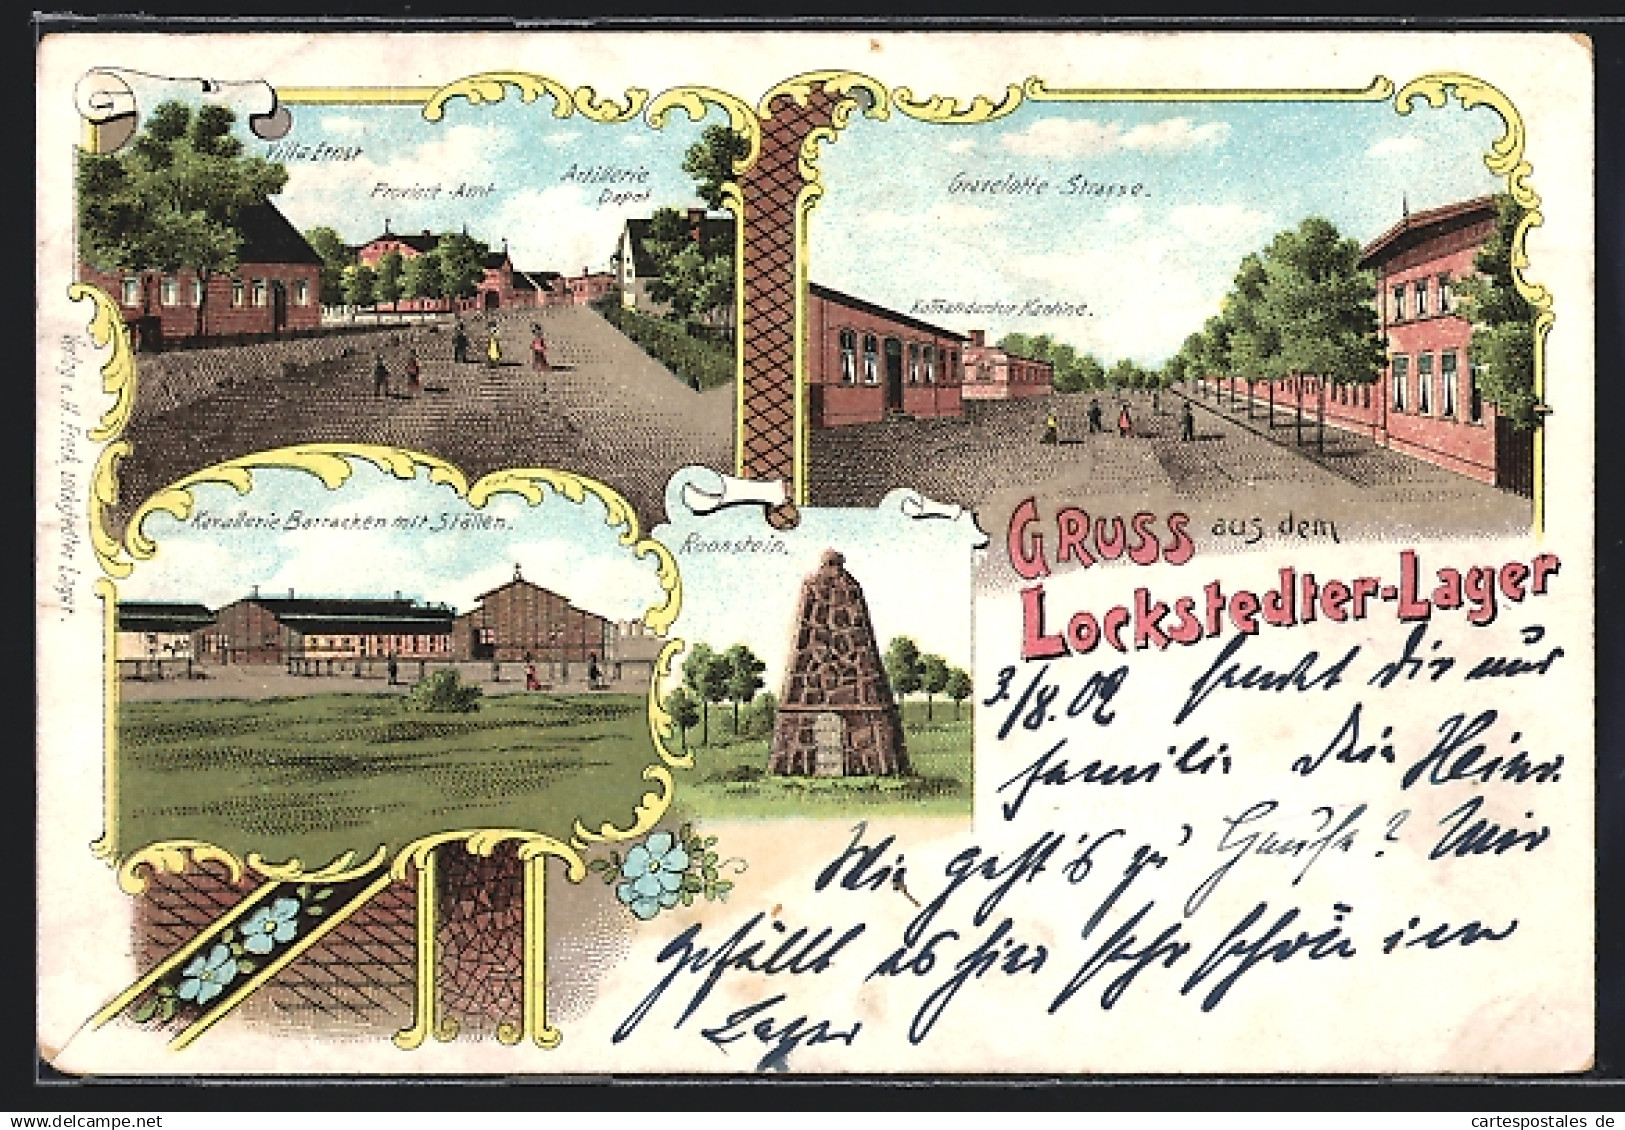 Villa Ernst
Proviant-Amt
Artillerie
Depot
Gravelotte-Strasse.
Komandantur Kantine.
Kavallerie Barracken mit Ställen.
Roonstein.
GRUSS aus dem
Lockstedter-Lager
3/8.02 sendet Dir nur
familie Dein Heinr.
Wie geht's zu Hause? Mir
gefällt es hier sehr schön im
Lager
Verlag v. H. Ernst, Lockstedter Lager.
delcampe.net
cartespostales de